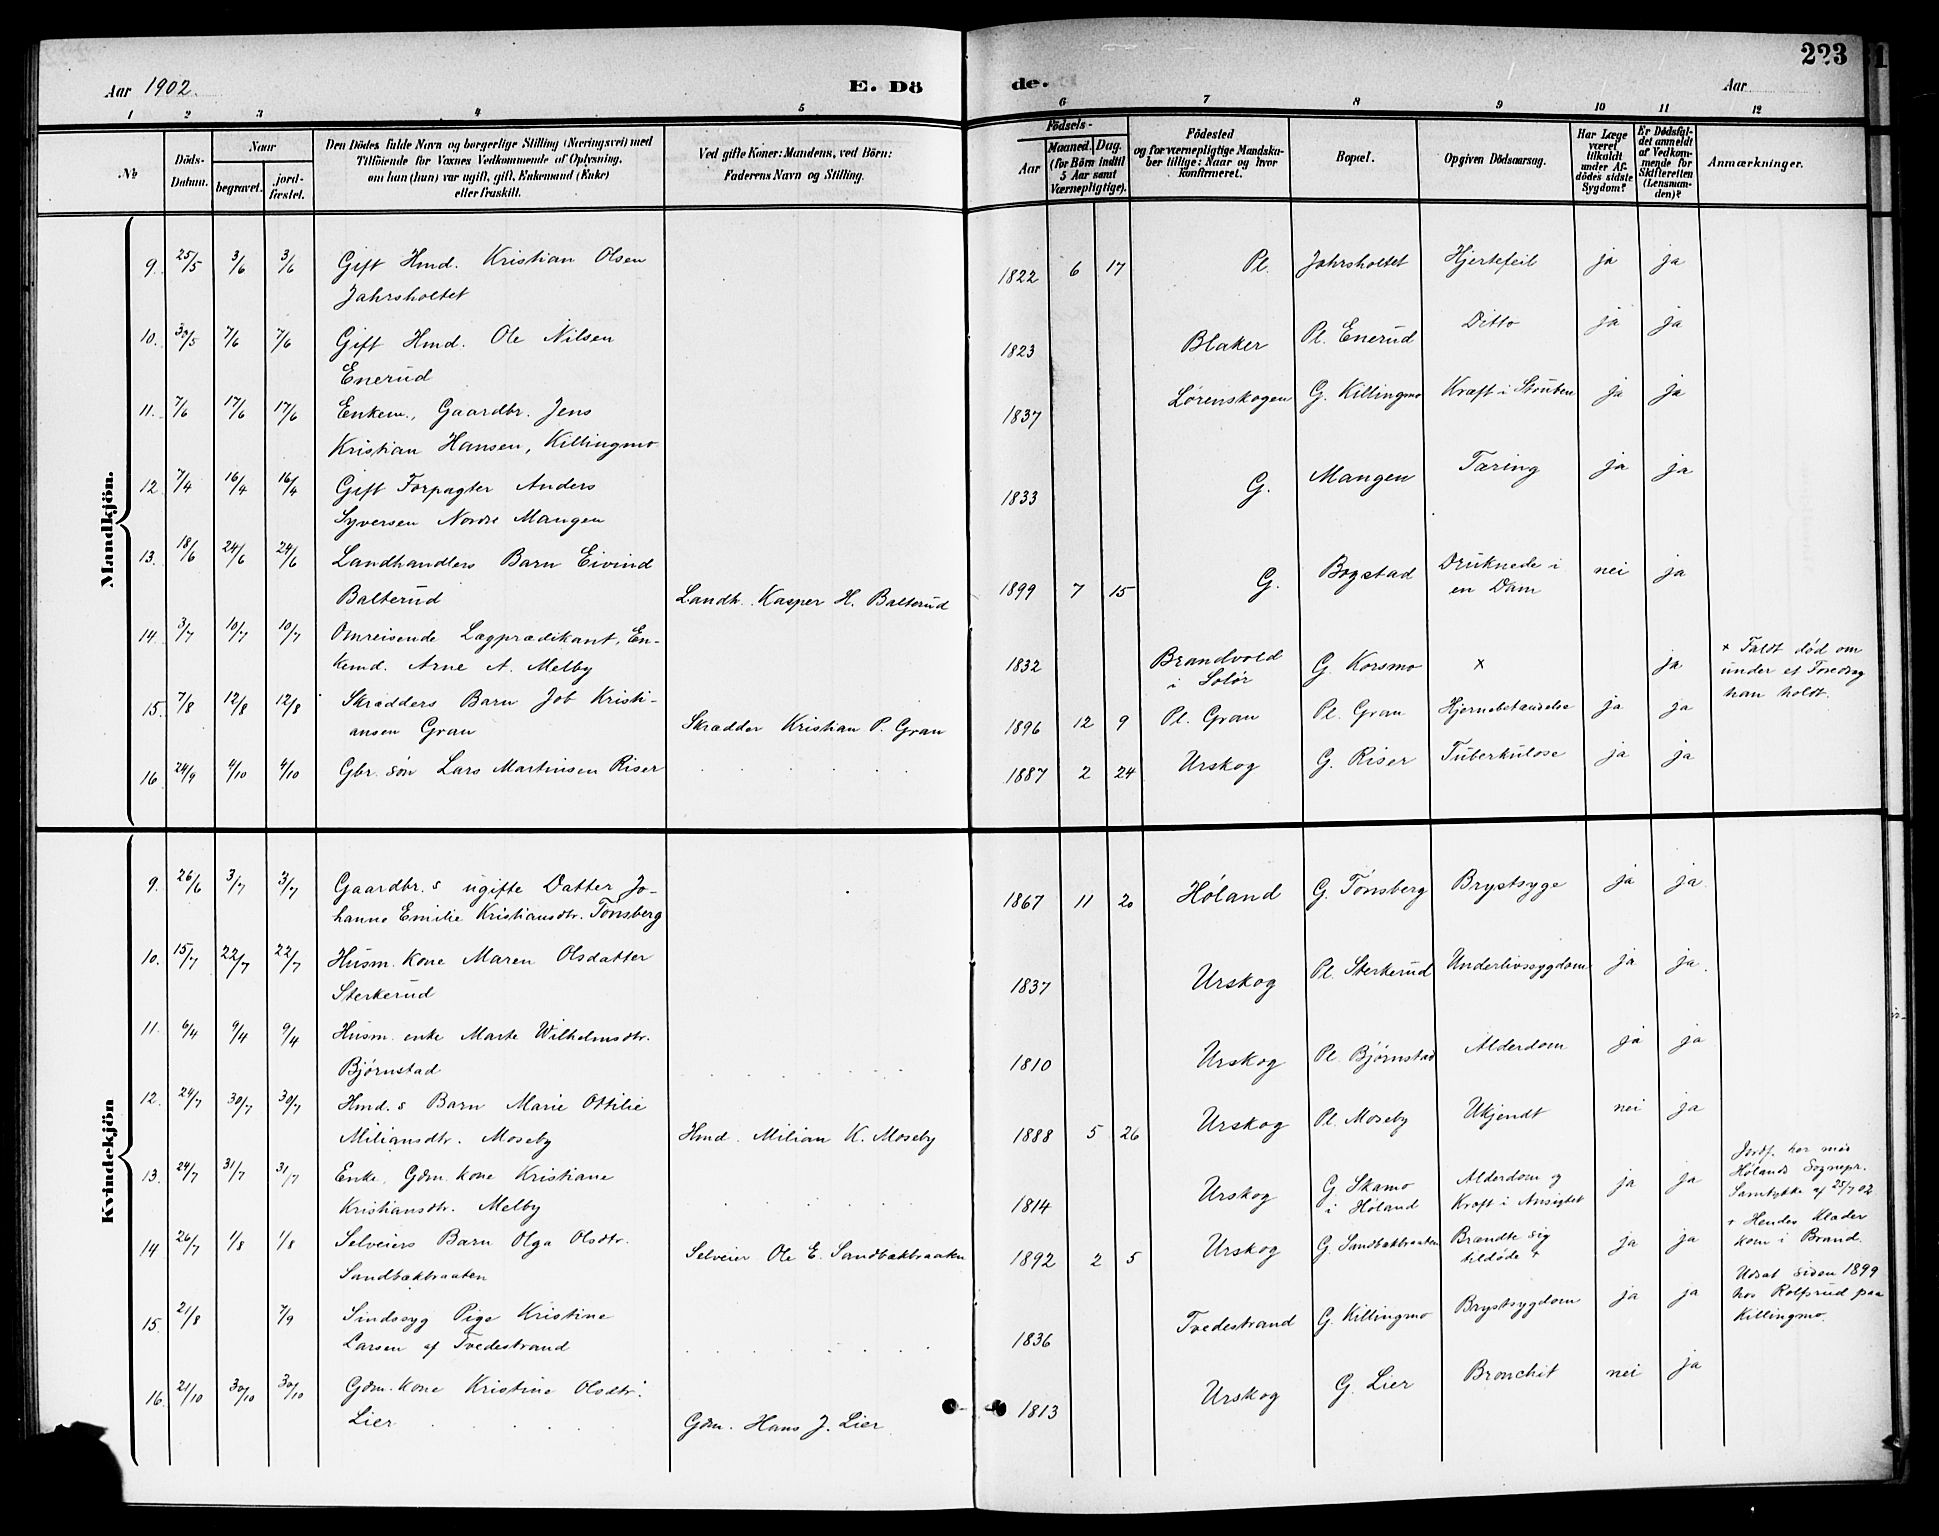 223
Aar 1902 E. Dö de. Aar
1 2 3 4 5 6 7 8 9 10 11 12
No Döds-Datum. Naar begravet. jord-fæstet. Den Dödes fulde Navn og borgerlige Stilling (Næringsvei) med Tilföiende for Voxnes Vedkommende af Oplysning, om han (hun) var ugift, gift, Enkemand (Enke) eller fraskilt. Ved gifte Koner: Mandens, ved Börn: Faderens Navn og Stilling. Födsels- Aar Maaned. Dag. (for Börn indtil 5 Aar samt Værnepligtige). Födested og for værnepligtige Mandskaber tillige: Naar og hvor konfirmeret. Bopæl. Opgiven Dödsaarsag. Har Læge været tilkaldt under Afdödes sidste Sygdom? Er Dødsfaldet anmeldt af Vedkommende for Skifteretten (Lensmanden)? Anmærkninger.
Mandkjön.
9. 25/5 3/6 3/6 Gift Hmd. Kristian Olsen
Jahrsholtet 1822 6 17 Pl. Jahrsholtet Hjertefeil ja ja
10. 30/5 7/6 7/6 Gift Hmd. Ole Nilsen
Enerud 1823 Blaker Pl. Enerud Ditto ja ja
11. 7/6 17/6 17/6 Enkem., Gaardbr. Jens
Kristian Hansen, Killingmo 1837 Lørenskogen G. Killingmo Kræft i Struben ja ja
12. 7/4 16/4 16/4 Gift Forpagter Anders
Syversen Nordre Mangen 1833 G. Mangen Tæring ja ja
13. 18/6 24/6 24/6 Landhandlers Barn Eivind
Balterud Landh. Kasper H. Balterud 1899 7 15 G. Bogstad Druknede i
en Dam nei ja
14. 3/7 10/7 10/7 Omreisende Lægprædikant, En-
kemd. Arne A. Melby 1832 Brandvold
i Solør G. Korsmo x ja x Faldt død om
under et Foredrag
han holdt.
15. 7/8 12/8 12/8 Skrædders Barn Job Kristi-
ansen Gran Skrædder Kristian P. Gran 1896 12 9 Pl. Gran Pl. Gran Hjernebetændelse ja ja
16 24/9 4/10 4/10 Gbr. søn Lars Martinsen Riser 1887 2 24 Urskog G. Riser Tuberkulose ja ja
Kvindekjön
9. 26/6 3/7 3/7 Gaardbr.s ugifte Datter Jo-
hanne Emilie Kristiansdtr. Tønsberg 1867 11 20 Høland G. Tønsberg Brystsyge ja ja.
10. 15/7 22/7 22/7 Husm. kone Maren Olsdatter
Sterkerud 1837 Urskog Pl. Sterkerud Underlivssygdom ja ja.
11. 6/4 9/4 9/4 Husm. enke Marte Wilhelmsdtr.
Bjørnstad 1810 Urskog Pl. Bjørnstad Alderdom ja ja
12. 24/7 30/7 30/7 Hmd.s Barn Marie Otilie
Miliansdtr. Moseby Hmd. Milian K. Moseby 1888 5 26 Urskog Pl. Moseby Ukjendt nei ja
13. 24/7 31/7 31/7 Enke, Gdm. kone Kristiane
Kristiansdtr. Melby 1814 Urskog G. Skamo
i Høland Alderdom og
Kræft i Ansigtet ja ja Jordf. her med
Hølands Sognepr.
Samtykke af 25/7 02
14 26/7 1/8 1/8 Selveiers Barn Olga Olsdtr.
Sandbækbraaten Selveier Ole E. Sandbækbraaten 1892 2 5 Urskog G. Sandbækbraaten Brændte sig
tildøde + ja ja + Hendes Klæder
kom i Brand.
15. 21/8 7/9 Sindssyg Pige Kristine
Larsen af Tvedestrand 1836 Tvedestrand G. Killingmo Brystsygdom ja ja Udsat siden 1899
hos Rolfsrud paa
Killingmo.
16. 21/10 30/10 30/10 Gdm. kone Kristine Olsdtr.
Lier Gdm. Hans J. Lier 1813 Urskog G. Lier Bronchit nei ja